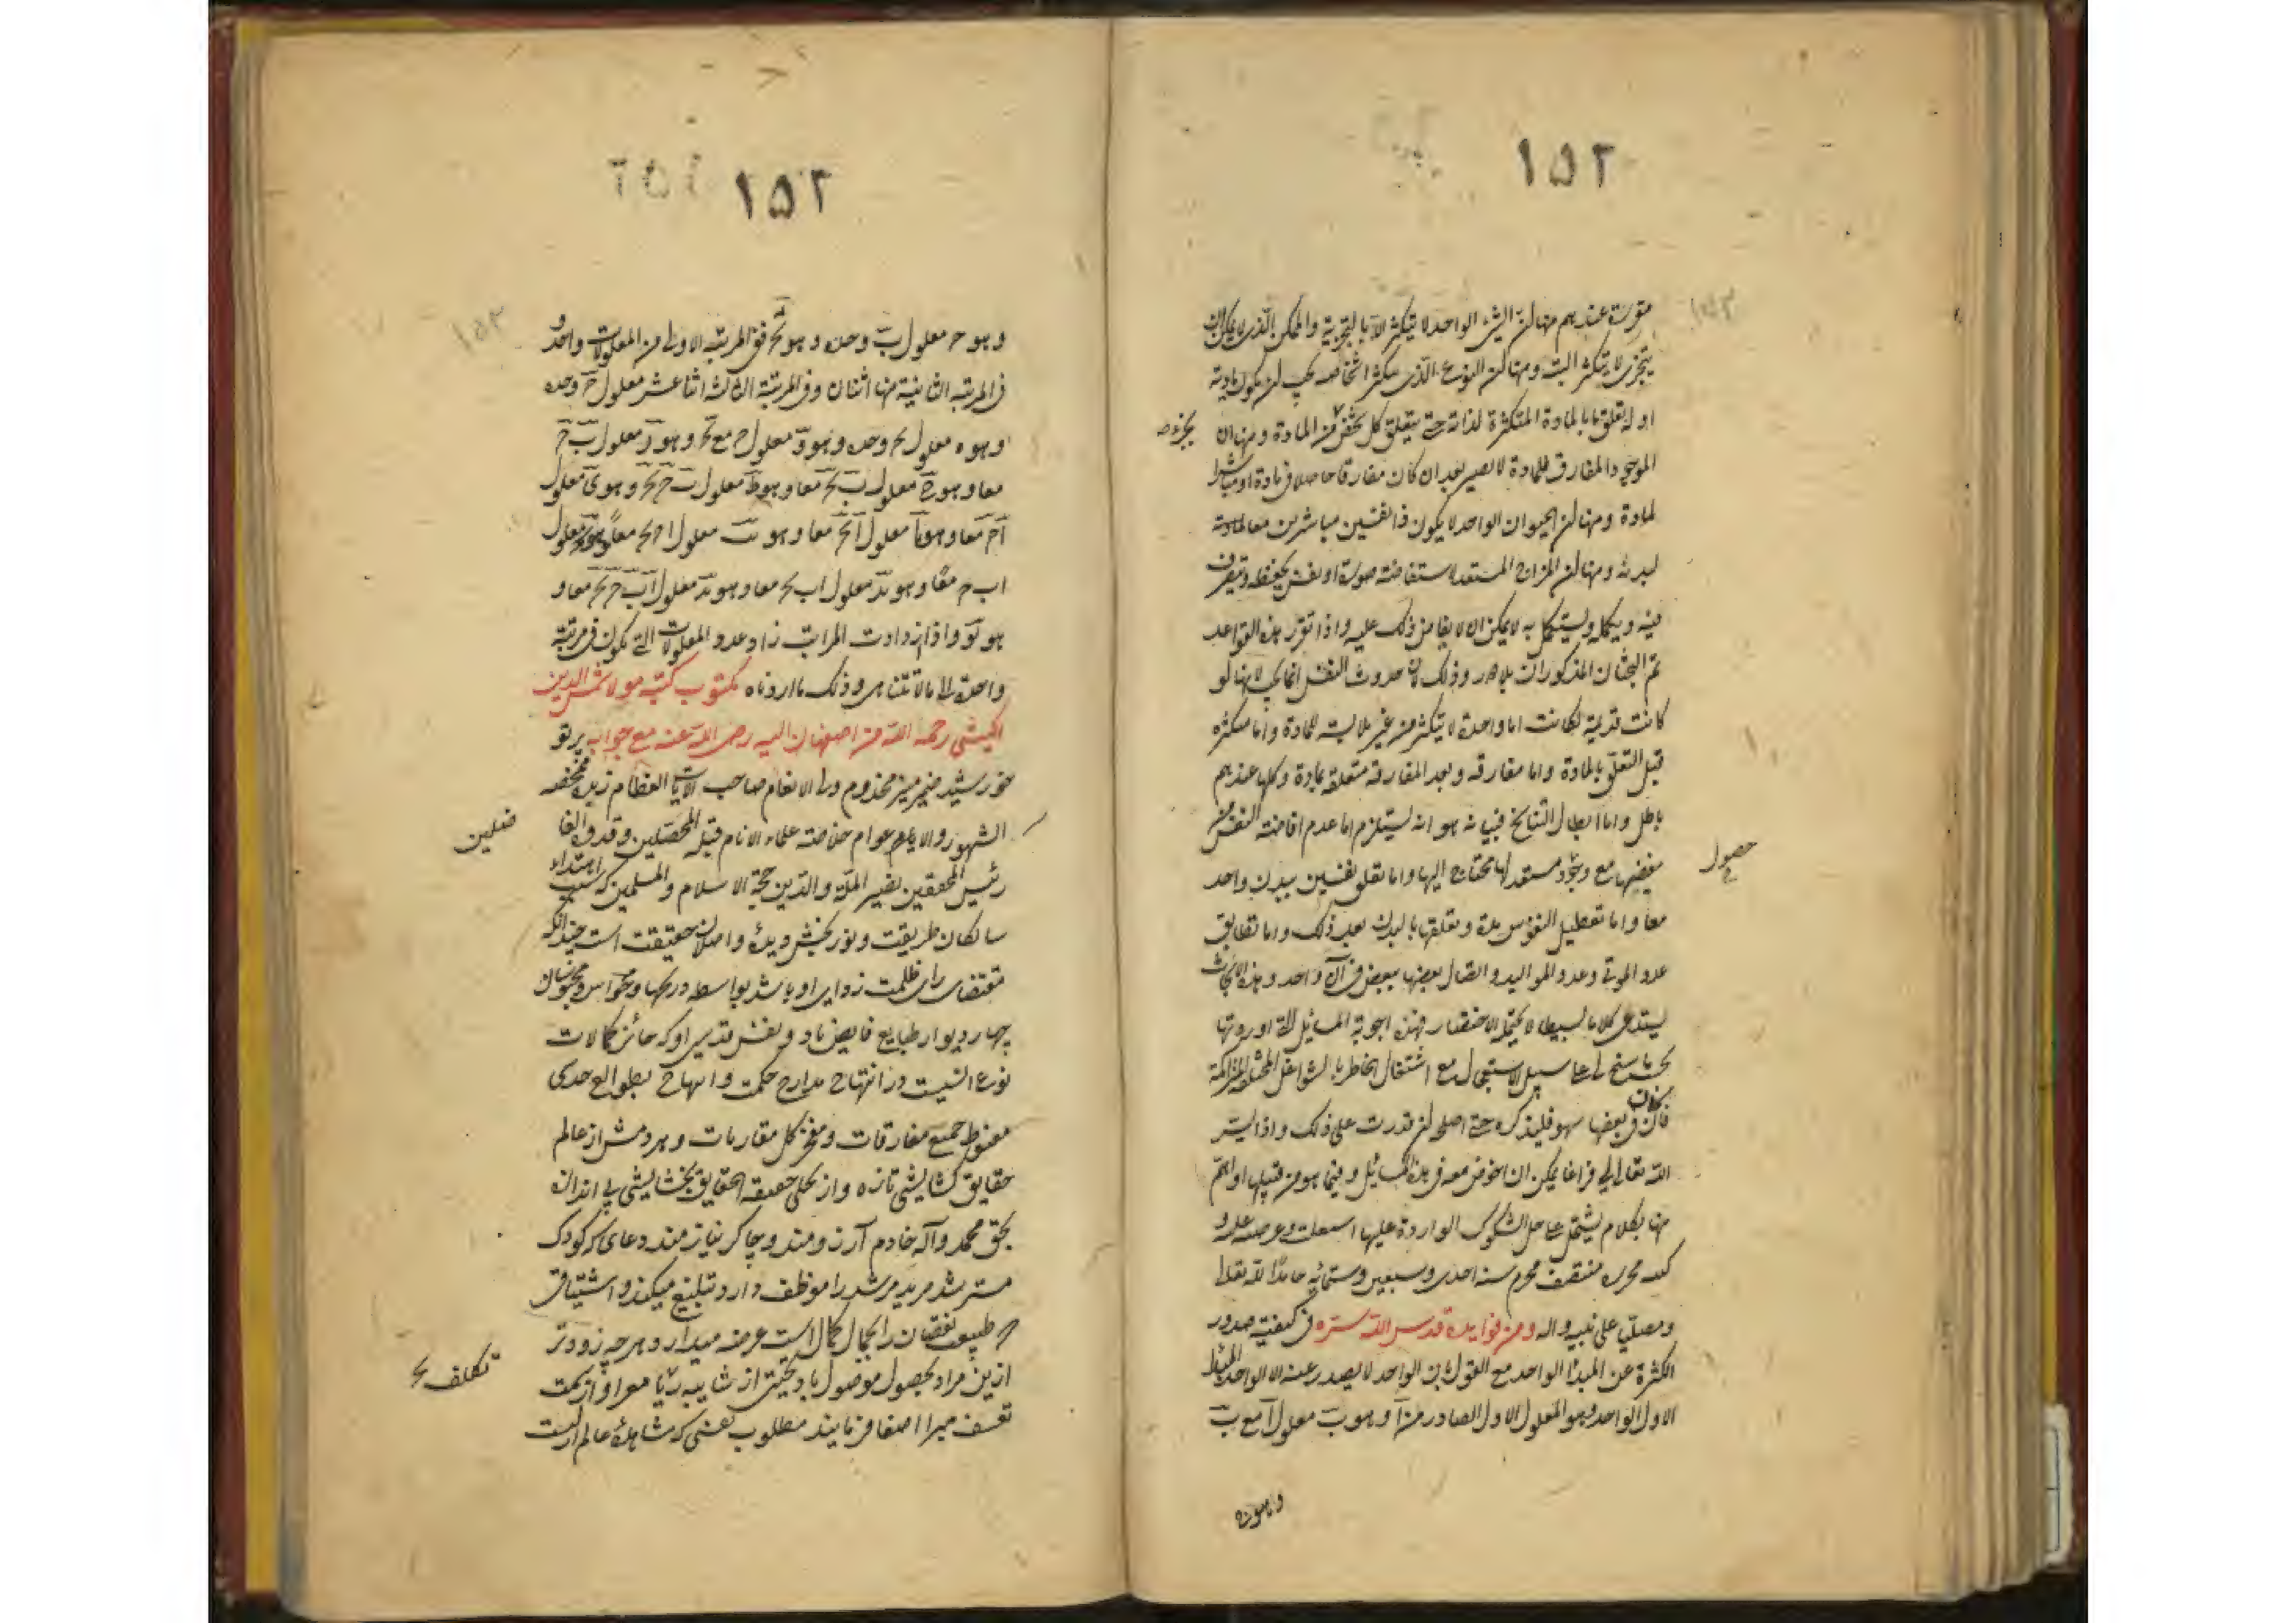 ١٥٢
مقررة عندهم منها ان الشیء الواحد لا یتکثر الا بالتجزیة والممکن الذی لا یمکن ان
یتجزی لا یتکثر البتة ومنها ان النوع الذی یتکثر اشخاصه یجب ان یکون مادیة
او له تعلق ما بالمادة المتکثرة لذاته حتی یتعلق کل شخص من المادة ومنها ان
الموجود المفارق للمادة لا یصیر بعد ان کان مفارقا حاصلا فی مادة او مباشرا
لمادة ومنها ان الحیوان الواحد لا یکون ذا نفسین مباشرین معا لمادة
لبدنه ومنها ان المزاج المستعد لاستفاضة صورة او نفس یحفظه ویتصرف
فیه ویکمله ویستکمل به لا یمکن ان لا یفاض ذلک علیه واذا تقرر هذه القواعد
تم البحثان المذکوران وذلک لان حدوث النفس انما یجب لانها لو
کانت قدیمة لکانت اما واحدة لا یتکثر من غیر ملابسة للمادة واما متکثرة
قبل التعلق بالمادة واما مفارقه وبعد المفارقة متعلقة بمادة وکلها عندهم
باطل واما ابطال التناسخ فبیانه هو انه یستلزم اما عدم افاضة النفس من
مفیضها مع وجود مستعد لها محتاج الیها واما تعلق نفسین ببدن واحد
حصول
معا واما تعطیل النفوس مدة وتعلقها بالبدن بعد ذلک واما تطابق
عدد الموتی وعدد الموالید واتصال بعضها ببعض فی آن واحد وهذه الابحاث
یستدعی کلاما بسیطا لا یحتمل الاختصار فهذه اجوبة المسائل التی اوردتها
بحسب ما سنح لی علی سبیل الاستعجال مع اشتغال الخاطر بالشواغل المختلفة المتراکمة
فان کان فی بعضها سهو فلیذکره حتی اصلح ان قدرت علی ذلک واذا یسر
الله تعالی لی فراغا یمکن ان اخوض معه فی هذه المسائل وفیما هو من قبیلها او اهم
منها بکلام یشتمل علی حل الشکوک الواردة علیها
کتبه محرره منتصف محرم سنة احدی وسبعین وستمائة حامدا لله تعالی
ومصلیا علی نبیه واله ومن فوایده قدس الله سره فی کیفیة صدور
الکثرة عن المبدأ الواحد مع القول بان الواحد لا یصدر عنه الا الواحد المبدأ
الاول الواحد وهو المعلول الاول الصادر من آ وهو ب معلول آ مع ب
١٥٢
وهو ح معلول ب وحده وهو فی المرتبة الاولی من المعلولات واحد و
فی المرتبة الثانیة منها اثنان وفی المرتبة الثالثة اثنا عشر معلول ح وحده
وهو ه معلول وحده وهو و معلول ح مع وهو ر معلول ب ح
معا وهو ح معلول ب معا وهو ط معلول ب ح وهو ی معلول
ا ح معا وهو یا معلول معا وهو یب معلول ا ح معا وهو معلول
اب ح معا وهو ید معلول اب معا وهو یه معلول اب ح معا و
هو یو واذا ازدادت المراتب زاد عدد المعلولات التی تکون فی مرتبة
واحدة الی ما لا تتناهی وذلک ما اردناه مکتوب کتبه مولانا شمس الدین
الکیشی رحمه الله من اصفهان الیه رضی الله عنه مع جوابه پرتو
خورشید ضمیر منیر مخدوم ولی الانعام صاحب الایات العظام زبدة محصه
الشهور والاعوام خلاصة علماء الانام قبلة المحصلین وقدوة الفا
ضلین
رئیس المحققین نصیر الملة والدین حجة الاسلام والمسلمین که سبب اهتداء
سالکان طریقت ونوربخش دیدهٔ واصلان حقیقت است چندانکه
مقتضای رای ظلمت زدای او باشد بواسطه درکها وحواس ومحبوسان
چهار دیوار طبایع فایض باد ونفس قدسی او که حائز کمالات
نوع انسیست در انتهاج مدارج حکمت وابتهاج بطوالع حدسی
مغبوط جمیع مفارقات ومفخر کل مقارنات وهر دمش از عالم
حقایق گشایشی تازه واز تجلی حقیقة الحقایق بخشایشی بی اندازه
بحق محمد وآله خادم آرزومند وچاکر نیازمند دعای که کودک
مسترشد مرید مرشد را موظف دارد تبلیغ میکند واشتیاق
طبیعی نقصان را بجمال کمال است عرضه میدارد وهر چه زودتر
ازین مراد بحصول موصول باد تحیتی از شایبه ریا معرا واز سمت
تکلف
تعسف مبرا اصغا فرمایند مطلوب نفسی که مشاهدهٔ عالم ازلست